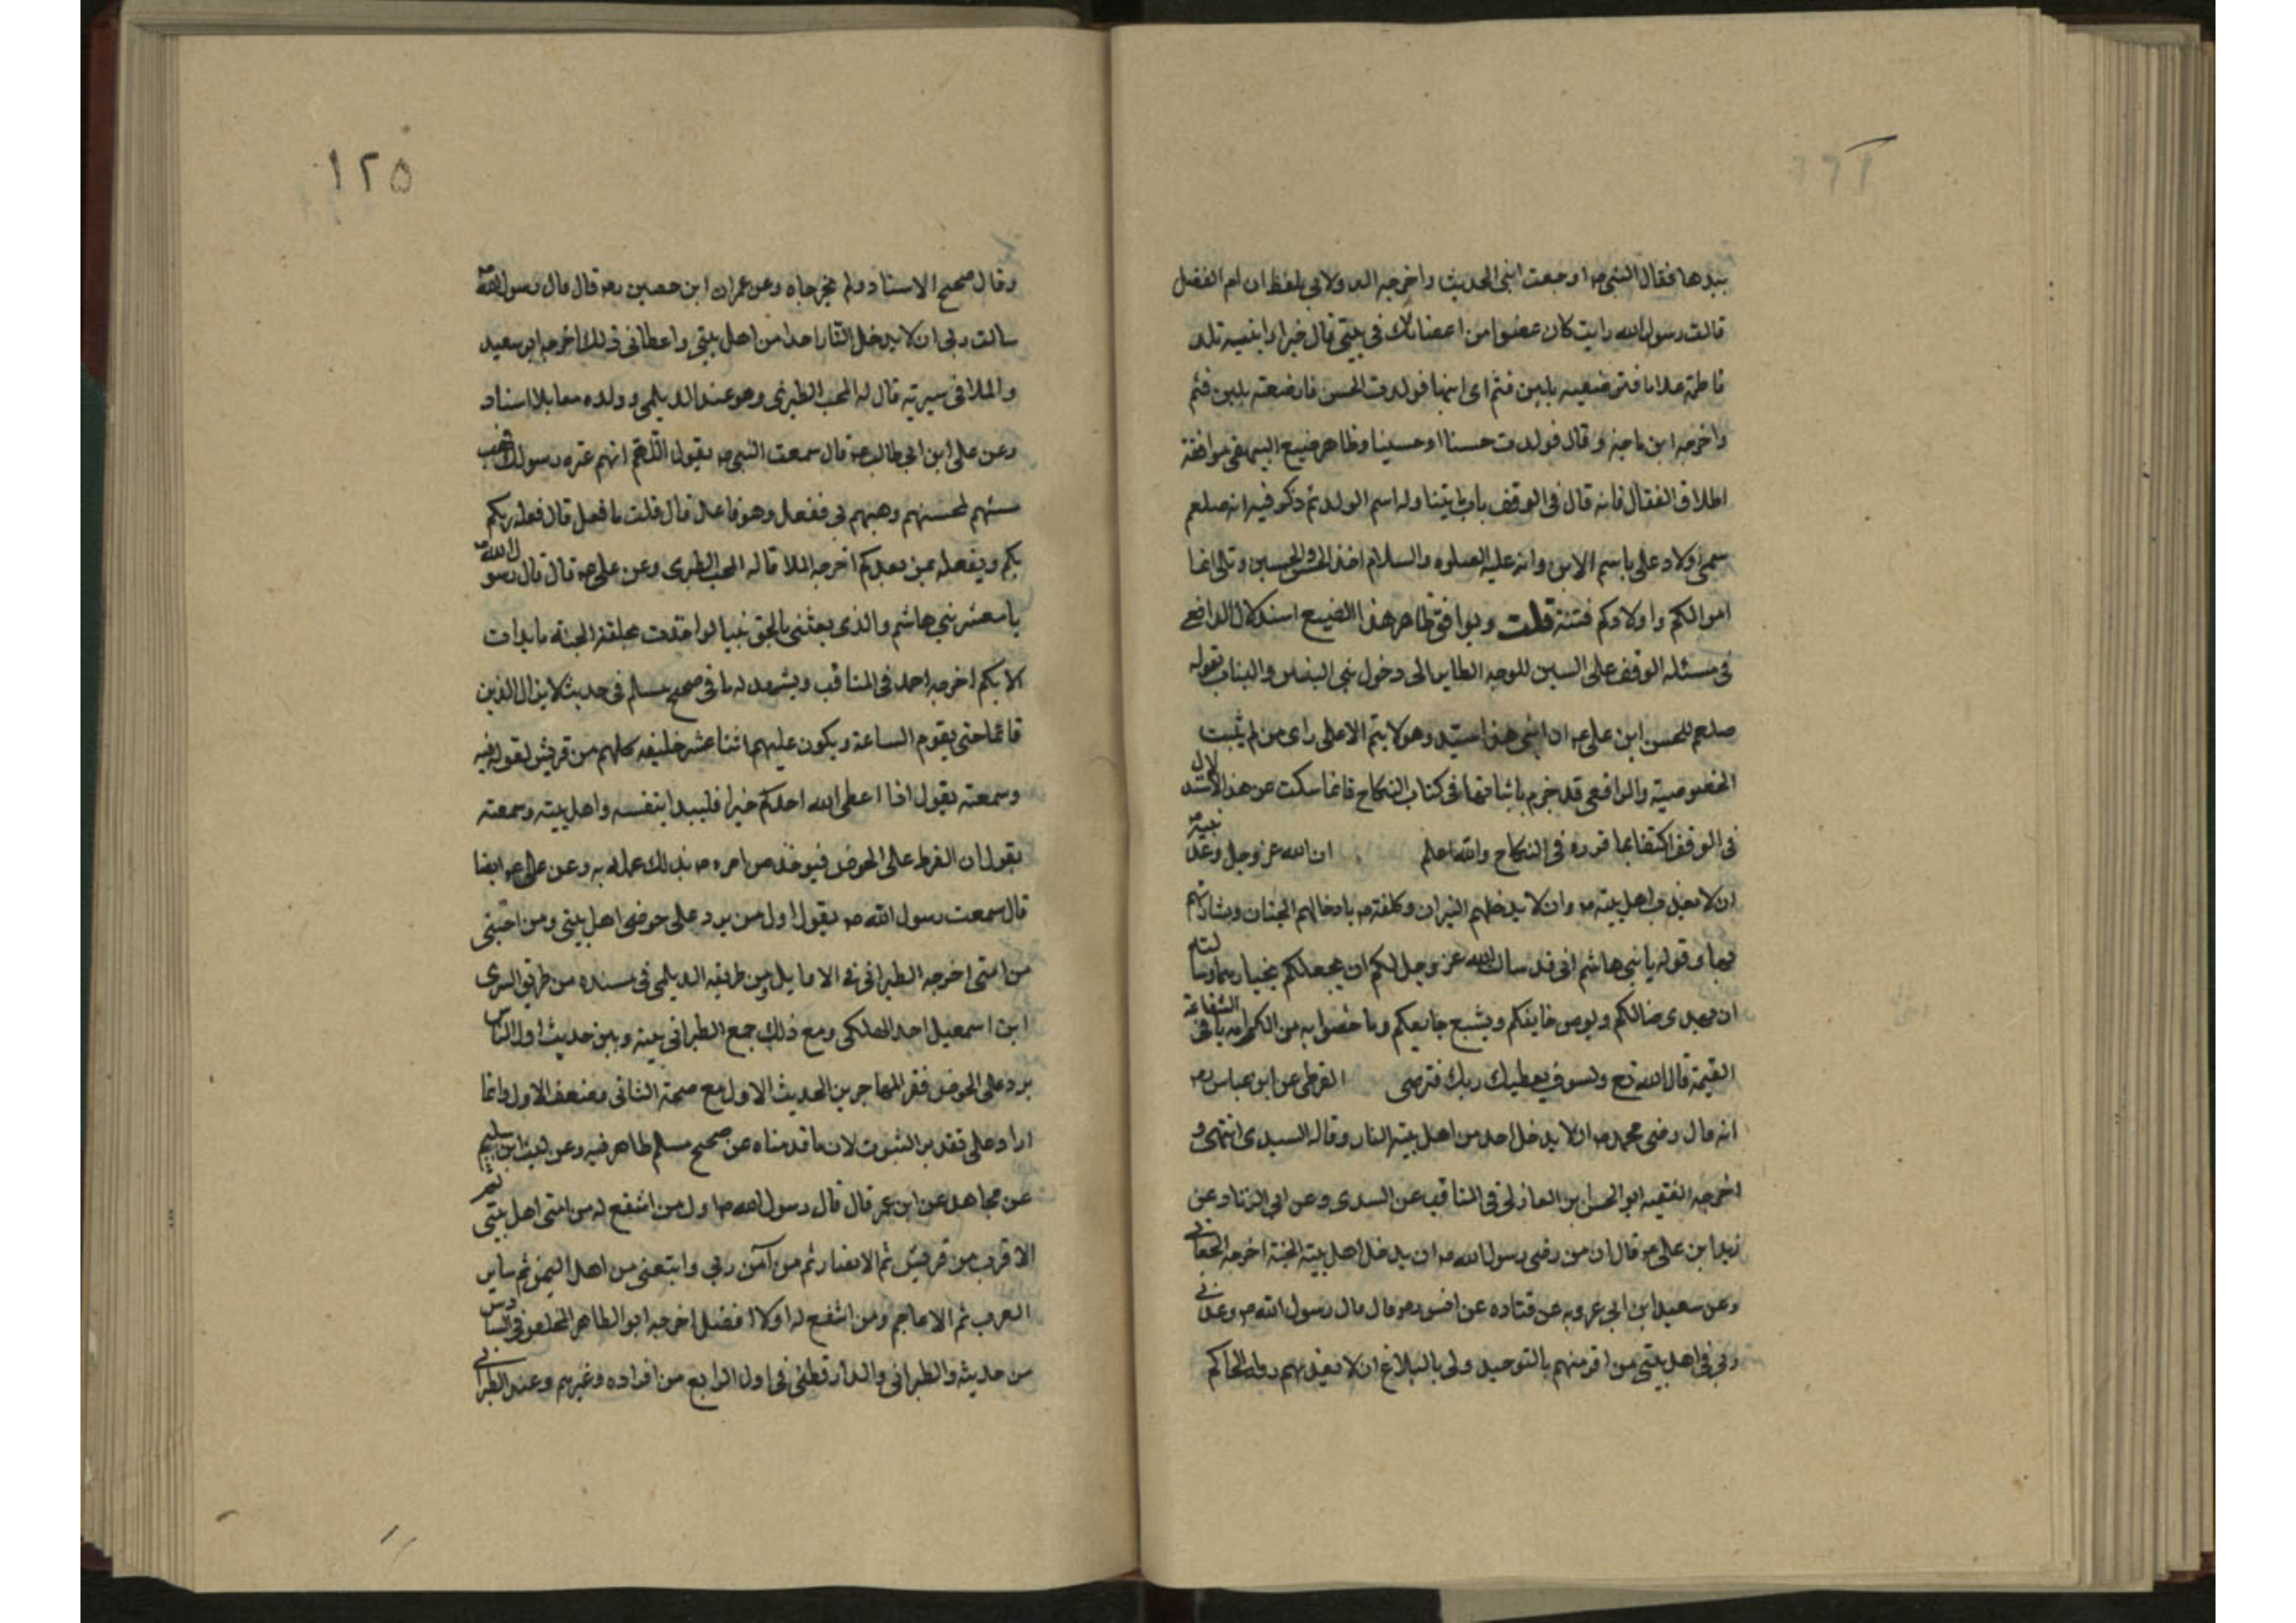 بيدها فقال النبي ص اوجعت ابني الحديث واخرجه الدولابي بلفظ ان ام الفضل
قالت رسول الله رايت كان عضوا من اعضائك في بيتي قال خيرا رايتيه تلد
فاطمة غلاما فترضعيه بلبن قثم اى ابنها فولدت الحسن فارضعته بلبن قثم
واخرجه ابن ماجة وقال فولدت حسنا او حسينا وظاهر صنيع البيهقي موافقة
اطلاق القفال فانه قال في الوقف باب يتناوله اسم الولد ثم ذكر فيه انه صلعم
سمى اولاد على باسم الابن وانه عليه الصلوه والسلام اخذ الحسن والحسين وتلى انما
اموالكم واولادكم فتنة قلت ويوافق ظاهر هذا الصنيع استدلال الرافعي
في مسئله الوقف على البنين للوجه الى دخول بني البنين والبنات بقوله
صلعم للحسن ابن على ع ان ابني هذا سيد وهو لا يتم الا على راى من لم يثبت
الخصوصية والرافعي قد جزم باثباتها في كتاب النكاح فانما سكت عن هذا الاستدلال
في الوقف اكتفا بما قرره في النكاح والله اعلم ان الله عز وجل وعد نبيه ص
ان لا يعذب اهل بيته ص وان لا يدخلهم النيران وكلفته ص بادخالهم الجنان وبشارتهم
بها وقوله يا بني هاشم اني قد سالت الله عز وجل لكم ان يجعلكم نجبا رحما وسالته
ان يهدى ضالكم ويومن خايفكم ويشبع جايعكم وما خصوا به من الكرامه باقي الشفاعة
القيمة قال الله تع ولسوف يعطيك ربك فترضى القرطبي عن ابن عباس رضه
انه قال رضى محمد ص ان لا يدخل احد من اهل بيته النار وقاله السدى انتهى و
اخرجه الفقيه ابو الحسن ابن المغازلي في المناقب عن السدى وعن ابي الزناد عن
زيد ابن على ع قال ان من رضى رسول الله ص ان يدخل اهل بيته الجنة اخرجه الجعابي
وعن سعيد ابن ابي عروبه عن قتاده عن انس رضه قال قال رسول الله ص وعدني
ربي في اهل بيتي من اقر منهم بالتوحيد ولى بالبلاغ ان لا يعذبهم رواه الحاكم
١٢٥
وقال صحيح الاسناد ولم يخرجاه وعن عمران ابن حصين رضه قال قال رسول الله ص
سالت ربي ان لا يدخل النار احدا من اهل بيتي واعطاني ذلك اخرجه ابو سعيد
والملا في سيرته قال له المحب الطبرى وهو عند الديلمي وولده معا بلا اسناد
وعن على ابن ابي طالب ع قال سمعت النبي ص يقول اللهم انهم عتره رسولك فهب
مسئهم لمحسنهم وهبهم لي ففعل وهو فاعل قال قلت ما فعل قال فعله ربكم
بكم ويفعله بمن بعدكم اخرجه الملا قاله المحب الطبرى وعن على ع قال قال رسول الله ص
يا معشر بني هاشم والذى بعثني بالحق نبيا لو اخذت بحلقة الجنة ما بدات
الا بكم اخرجه احمد في المناقب ويشهد له ما في صحيح مسلم في حديث لا يزال الدين
قائما حتى يقوم الساعة ويكون عليهم اثنا عشر خليفه كلهم من قريش لقوله فيه
وسمعته يقول اذا اعطى الله احدكم خيرا فليبدا بنفسه واهل بيته وسمعته
يقول ان الفرط على الحوض فيوخذ من امره ص بذلك عمله به وعن على ع ايضا
قال سمعت رسول الله ص يقول اول من يرد على حوضى اهل بيتي ومن احبني
من امتى اخرجه الطبراني في الاوايل ومن طريقه الديلمي في مسنده من طريق السرى
ابن اسمعيل احد الهلكى ومع ذلك جمع الطبراني بينه وبين حديث اول الناس
يرد على الحوض فقر المهاجرين الحديث الاول مع صحة الثاني وضعف الاول وانما
اراد على تقدير الثبوت لان ما قدمناه عن صحيح مسلم ظاهر فيه وعن ليث ابن سليم
عن مجاهد عن ابن عمر قال قال رسول الله ص اول من اشفع له من امتى اهل بيتي ثم
الاقرب من قريش ثم الانصار ثم من آمن ربي واتبعني من اهل اليمن ثم ساير
العرب ثم الاعاجم ومن اشفع له اولا افضل اخرجه ابو الطاهر المخلص في السادس
من حديثه والطبراني والدارقطني في اول الرابع من افراده وغيرهم وعند الطبراني